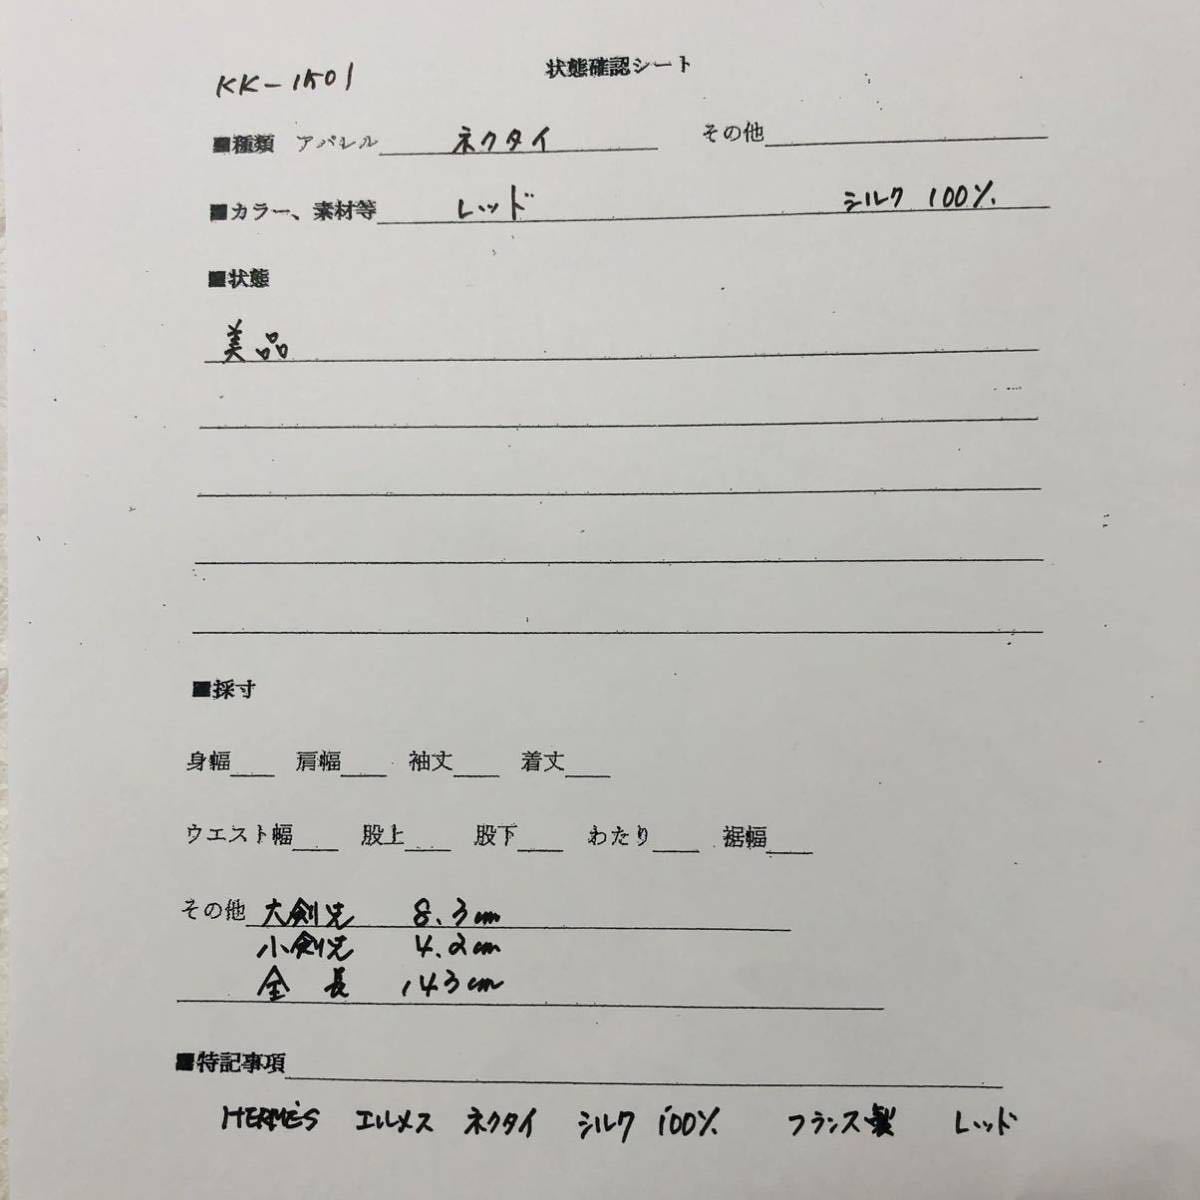 KK-1501
状態確認シート
■種類 アパレル ネクタイ その他
■カラー、素材等 レッド シルク 100%
■状態
美品
■採寸
身幅 肩幅 袖丈 着丈
ウエスト幅 股上 股下 わたり 裾幅
その他 大剣先 8.3cm
小剣先 4.2cm
全長 143cm
■特記事項
HERMÈS エルメス ネクタイ シルク 100% フランス製 レッド